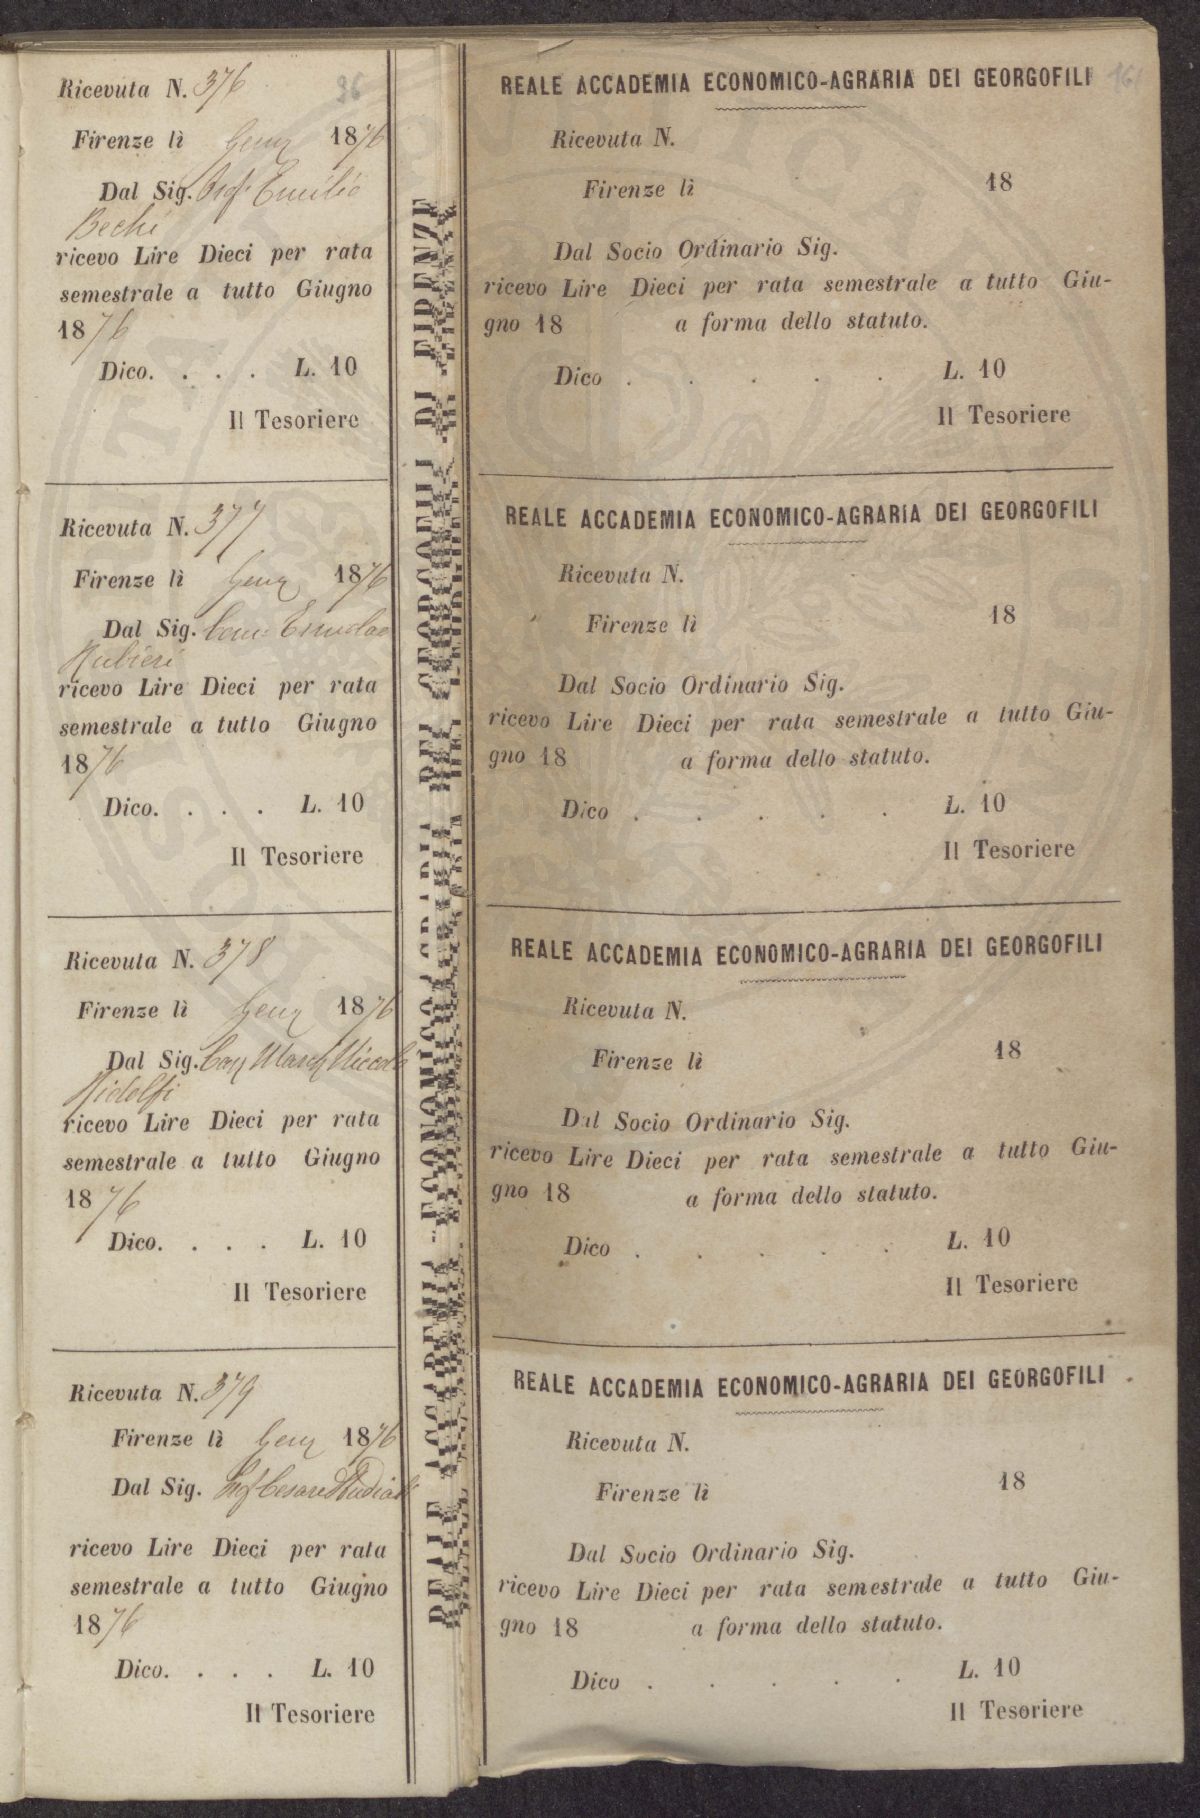 Ricevuta N. 376
96
Firenze lì Genn 1876
Dal Sig. Prof. Emilio
Bechi
ricevo Lire Dieci per rata
semestrale a tutto Giugno
1876
Dico. . . . L. 10
Il Tesoriere
Ricevuta N. 377
Firenze lì Genn 1876
Dal Sig. Com: Ermolao
Rubieri
ricevo Lire Dieci per rata
semestrale a tutto Giugno
1876
Dico. . . . L. 10
Il Tesoriere
Ricevuta N. 378
Firenze lì Genn 1876
Dal Sig. Cav March Niccolò
Ridolfi
ricevo Lire Dieci per rata
semestrale a tutto Giugno
1876
Dico. . . . L. 10
Il Tesoriere
Ricevuta N. 379
Firenze lì Genn 1876
Dal Sig. Prof Cesare Studiati
ricevo Lire Dieci per rata
semestrale a tutto Giugno
1876
Dico. . . . L. 10
Il Tesoriere
REALE ACCADEMIA ECONOMICO-AGRARIA DEI GEORGOFILI DI FIRENZE
REALE ACCADEMIA ECONOMICO-AGRARIA DEI GEORGOFILI
Ricevuta N.
Firenze lì 18
Dal Socio Ordinario Sig.
ricevo Lire Dieci per rata semestrale a tutto Giu-
gno 18 a forma dello statuto.
Dico . . . . . L. 10
Il Tesoriere
REALE ACCADEMIA ECONOMICO-AGRARIA DEI GEORGOFILI
Ricevuta N.
Firenze lì 18
Dal Socio Ordinario Sig.
ricevo Lire Dieci per rata semestrale a tutto Giu-
gno 18 a forma dello statuto.
Dico . . . . . L. 10
Il Tesoriere
REALE ACCADEMIA ECONOMICO-AGRARIA DEI GEORGOFILI
Ricevuta N.
Firenze lì 18
Dal Socio Ordinario Sig.
ricevo Lire Dieci per rata semestrale a tutto Giu-
gno 18 a forma dello statuto.
Dico . . . . . L. 10
Il Tesoriere
REALE ACCADEMIA ECONOMICO-AGRARIA DEI GEORGOFILI
Ricevuta N.
Firenze lì 18
Dal Socio Ordinario Sig.
ricevo Lire Dieci per rata semestrale a tutto Giu-
gno 18 a forma dello statuto.
Dico . . . . . L. 10
Il Tesoriere